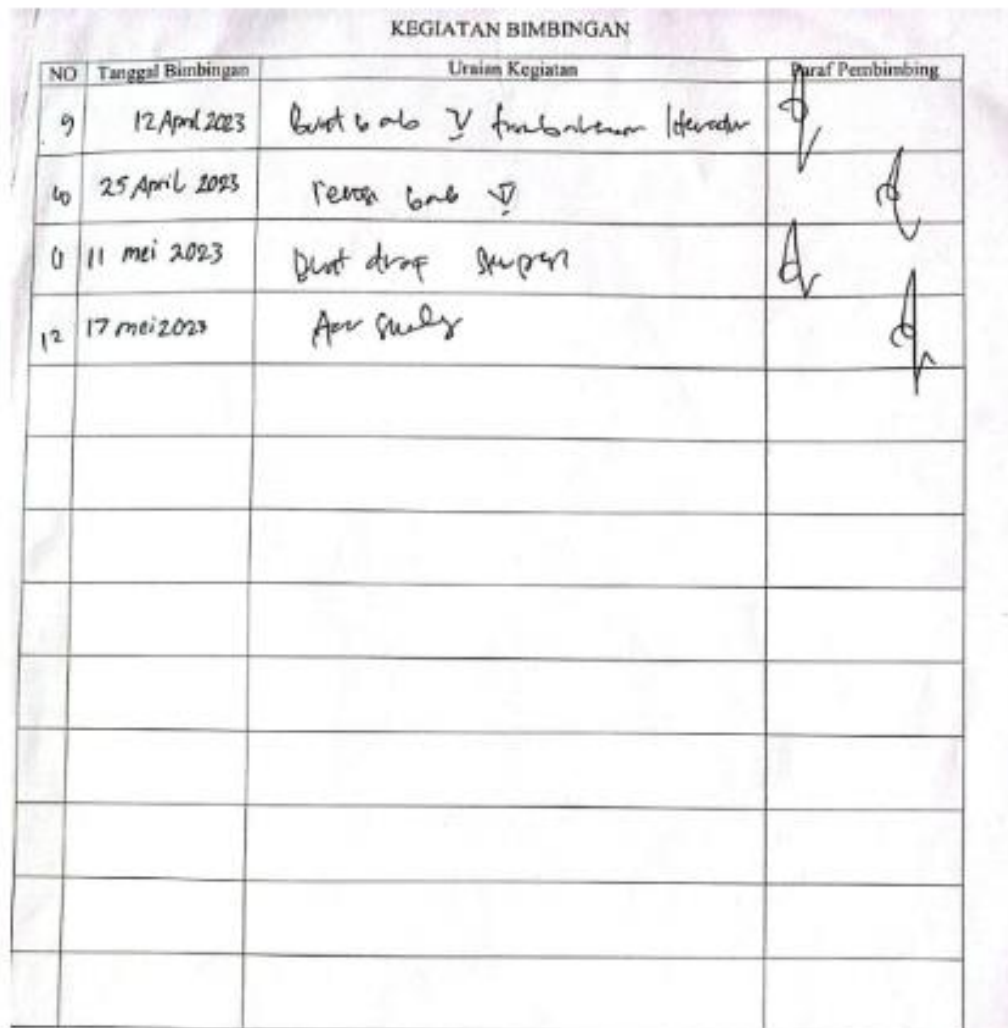 KEGIATAN BIMBINGAN
NO Tanggal Bimbingan Uraian Kegiatan Paraf Pembimbing
9 12 April 2023 Buat bab V
10 25 April 2023 revisi bab V
11 11 mei 2023 Buat draf skripsi
12 17 mei 2023 Acc